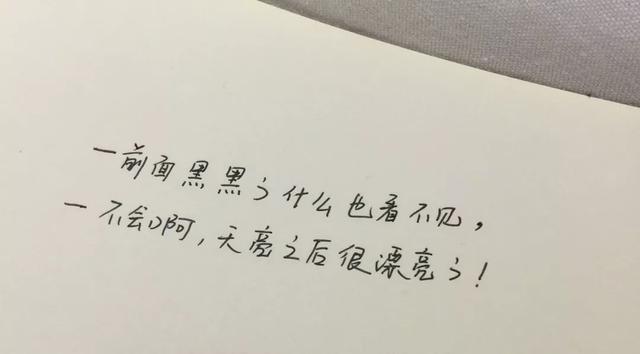 一前面黑黑的什么也看不见,
一不会啊,天亮之后很漂亮的!